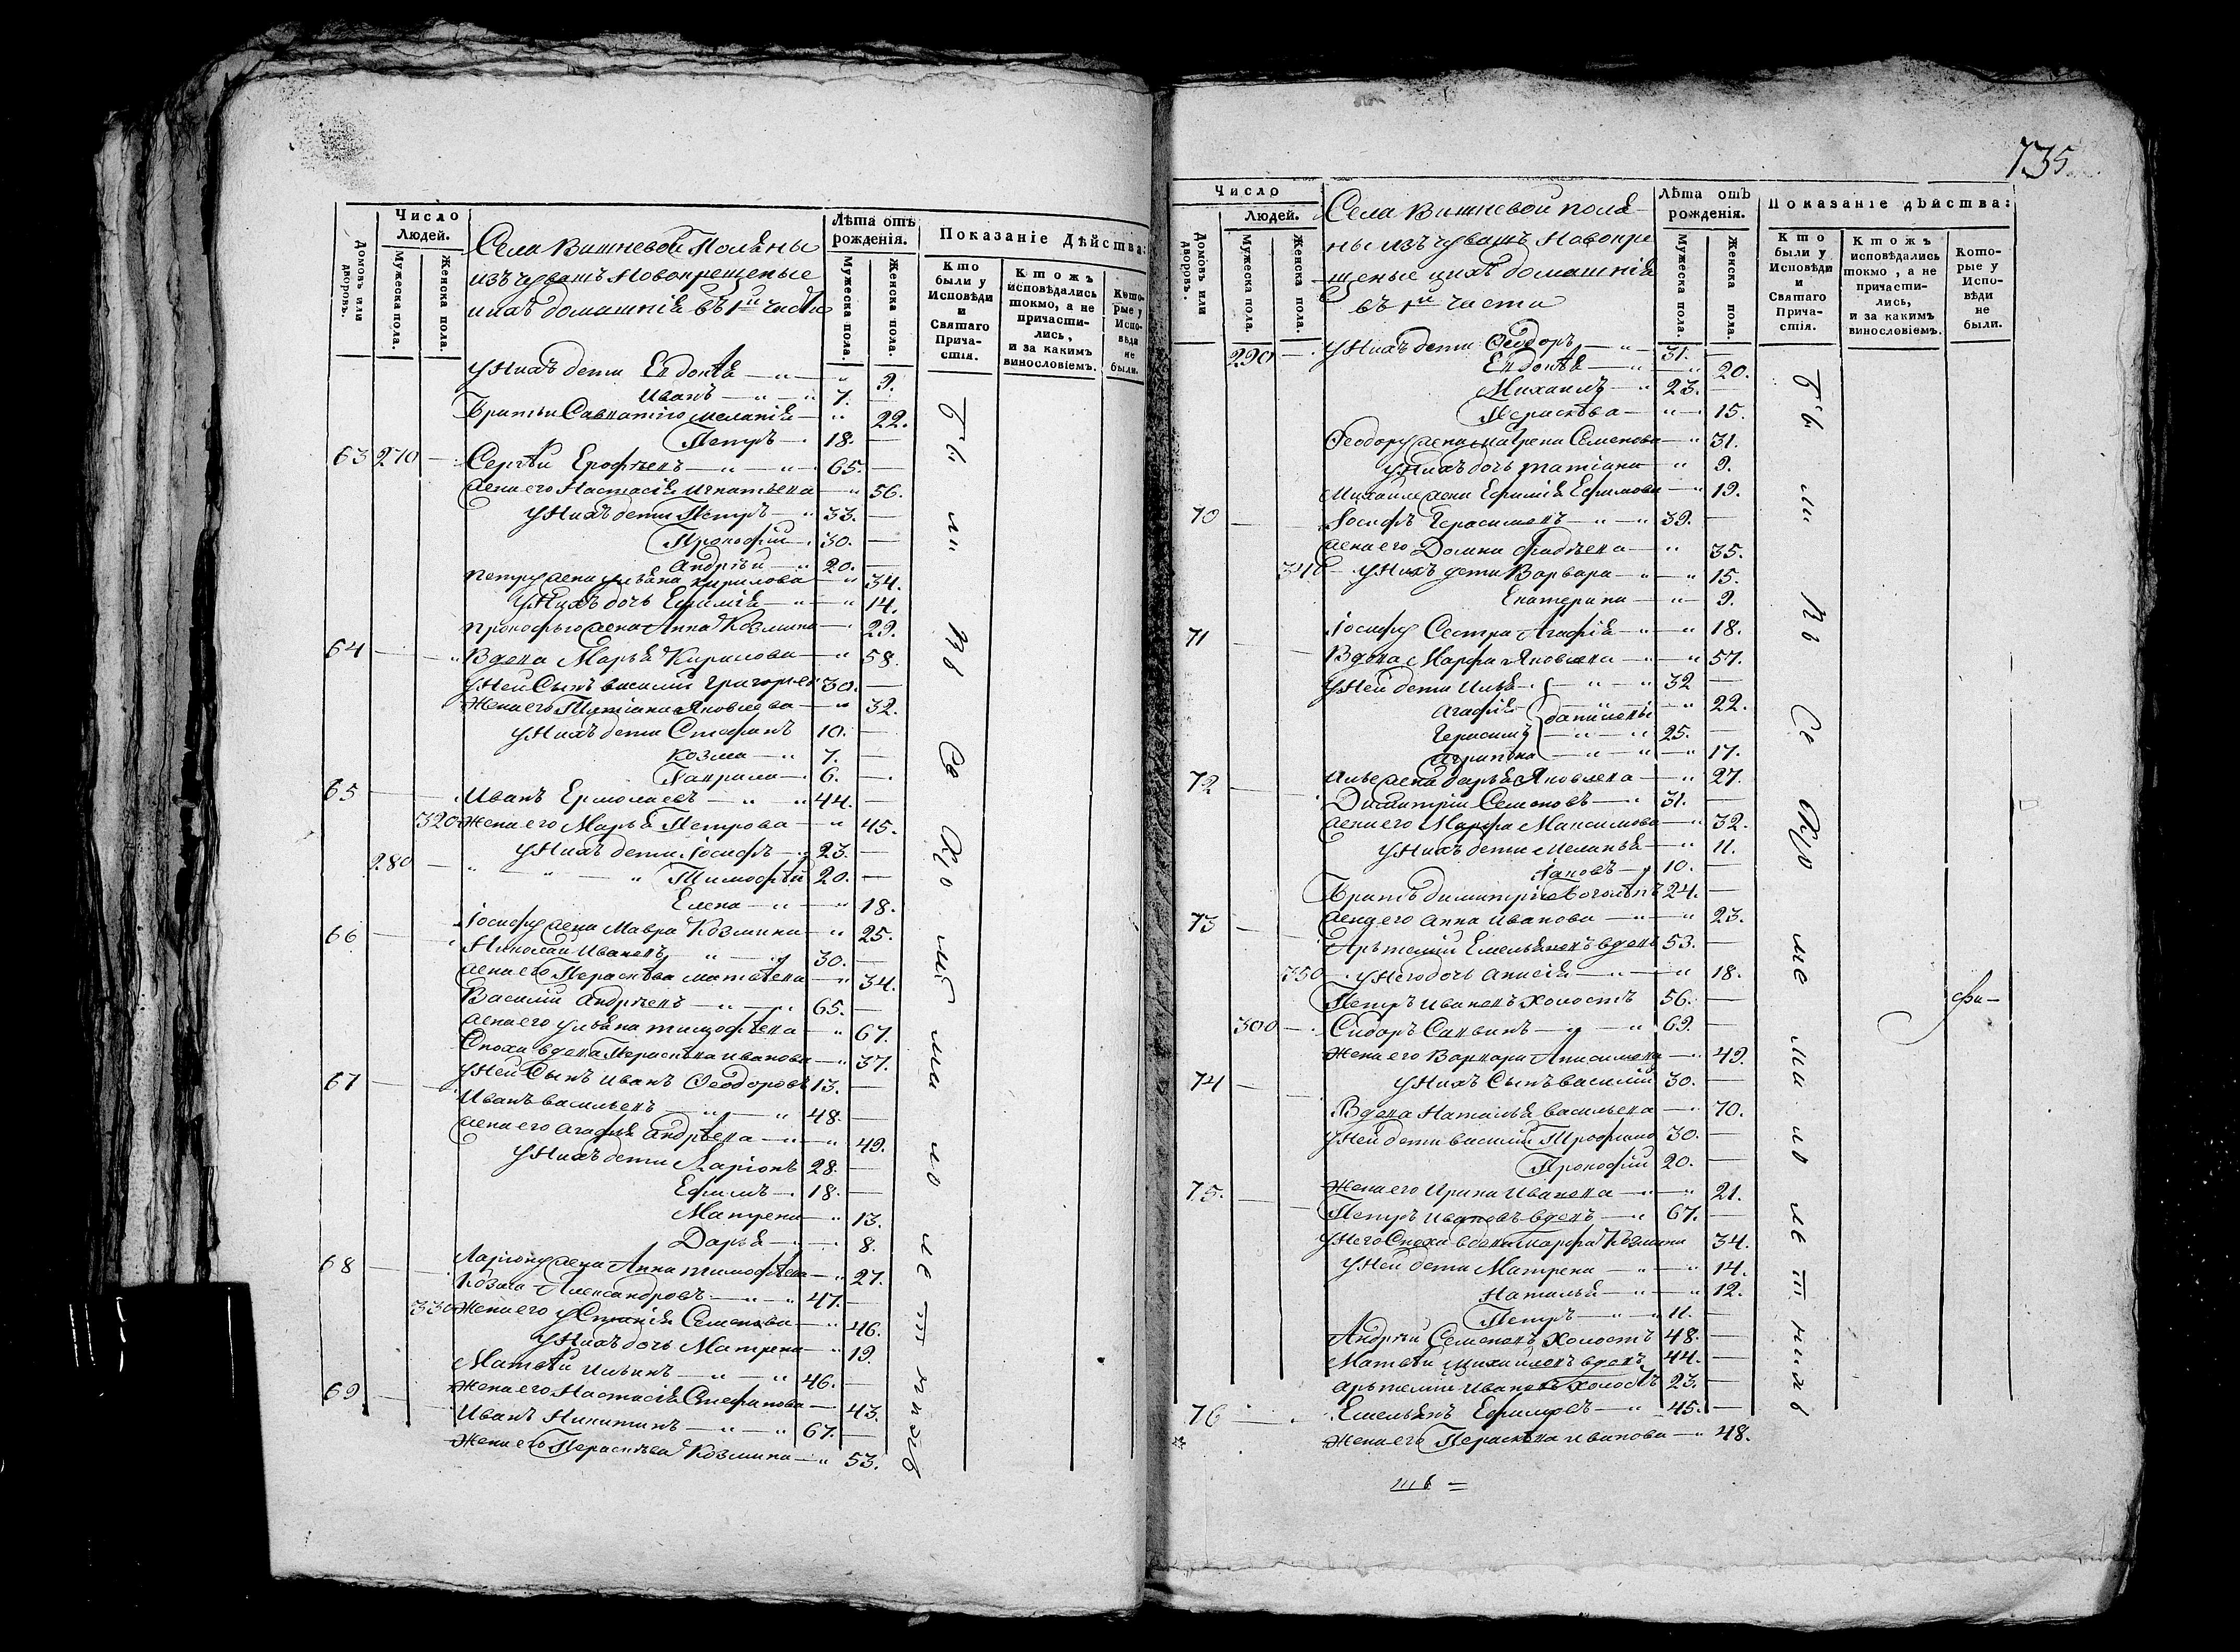 Число Людей.
Домовъ или дворовъ.
Мужеска пола.
Женска пола.
Села Вишневой Поляны
изъ чувашъ Новокрещеные
и ихъ домашнія въ 1й части
Лѣта отъ рожденія.
Мужеска пола.
Женска пола.
Показаніе Дѣйства:
Кто были у Исповѣди и Святаго Причастія.
Ктожъ исповѣдались токмо, а не причастились, и за какимъ винословіемъ.
Которые у Исповѣди не были.
У нихъ дети Евдокѣя — " 9.
Иванъ — " 7.
Братьи Савватiю Меланiя — " 22.
Петръ — 18. —
63 270 — Сергѣй Ерофѣевъ — " — " 65. —
жена его Настасія Игнатьева — " 56.
У нихъ дети Петръ — " 33. —
Прокофiй — 30. —
Андрѣй — " 20. —
Петру жена Ульяна Кирилова — " 34.
У нихъ дочь Ефимія — " 14.
Прокофью жена Анна Козмина — 29.
64 — " Вдова Марья Кирилова — " 58.
У ней Сынъ василiй Григорьев 30. —
Жена его Татiана Яковлева — " 32.
У нихъ дети Стефанъ 10. —
Козма — " 7. —
Гаврила — 6. —
65 — Иванъ Ермолаевъ — " " 44. —
320 Жена его Марья Петрова — " 45.
У нихъ дети Iосифъ — 23. —
280 — " — " — " Тимофѣй 20. —
Елена — " — " 18.
Iосифу жена Мавра Козмина — " 25.
66 — " Николай Ивановъ " — " 30. —
жена его Параскѣва Матвѣева — " 34.
Василiй Андрѣевъ — " — " 65. —
жена его Ульяна Тимофѣева — " 67.
Сноха вдова Параскѣва Иванова — " 37.
У ней Сынъ Иванъ Ѳеодоровъ 13. —
67 — Иванъ Васильевъ — " — " 48. —
жена его Агафья Андрѣева — " — " 49.
У нихъ дети Ларiонъ 28. —
Ефимъ — 18. —
Матрена — " 13.
Дарья — 8.
Ларiону жена Анна Тимофѣева — " 27.
68 — Козма Александровъ — " — " 47. —
330 Жена его Устинiя Семенова — " 46.
У нихъ дочь Матрена — " 19.
Матвѣй Ильинъ — " — " 46. —
Жена его Настасія Стефанова — 43.
69. — Иванъ Никитинъ — " — " 67. —
Жена его Параскѣва Козмина — " 53.
735
Число Людей.
Домовъ или дворовъ.
Мужеска пола.
Женска пола.
Села Вишневой поля-
ны изъ чувашъ Новокре
щеные и ихъ домашнія
въ 1й части
Лѣта отъ рожденія.
Мужеска пола.
Женска пола.
Показаніе дѣйства:
Кто были у Исповѣди и Святаго Причастія.
Ктожъ исповѣдались токмо, а не причастились, и за какимъ винословіемъ.
Которые у Исповѣди не были.
290 — У нихъ дети Ѳеодоръ — " 31. —
Евдокѣя — " — " 20.
Михаилъ — " 23. —
Параскѣва — " — 15.
Ѳеодору жена Матрена Семенова — " 31.
У нихъ дочь Татiана — " 9.
Михаиле жена Ефимія Ефимова — " 19.
70 — Iосифъ Герасимовъ — " — " 39. —
жена его Домна Фадѣева — " 35.
340 — У нихъ дети Варвара — " — " 15.
Екатерина — " — 9.
Iосифу Сестра Агафія — " — " 18.
71 — Вдова Марфа Яковлева — " — " 57.
У ней дети Илья — " — " 32 —
Агафія Даниловы — " 22.
Герасимъ — " — " 25. —
Агрипина — " — " — " 17.
Илье жена Дарья Яковлева — " 27.
72 — Димитрiй Семеновъ — " 31. —
жена его Марфа Максимова — " 32.
У нихъ дети Меланья — " 11.
Iаковъ — " 10. —
Братъ Димитрiю 24. —
жена его Анна Иванова — " — " 23.
73 — Артемiй Емельяновъ вдовъ 53. —
350 — У него дочь Анисiя — " — " 18.
Петръ Ивановъ Холостъ 56. —
300 — Сидоръ Саввинъ — " — " 69. —
Жена его Варвара Анисимова — " 49.
У нихъ Сынъ Василiй 30. —
74 — Вдова Наталья Васильева — " 70.
У ней дети Василiй Трофимо 30. —
Прокофiй 20. —
Жена его Ирина Иванова — " — " 21.
75. — Петръ Ивановъ вдовъ — " 67. —
У него Сноха вдова Марфа Козмина 34.
У ней дети Матрена — " — " 14.
Наталья — " — " 12.
Петръ — " — " 11. —
Андрѣй Семеновъ Холостъ 48. —
Матвѣй Михайловъ вдовъ 44. —
Артемiй Ивановъ Холостъ 23. —
76 — Емельянъ Ефимовъ — " 45. —
Жена его Параскѣва Иванова — " 48.